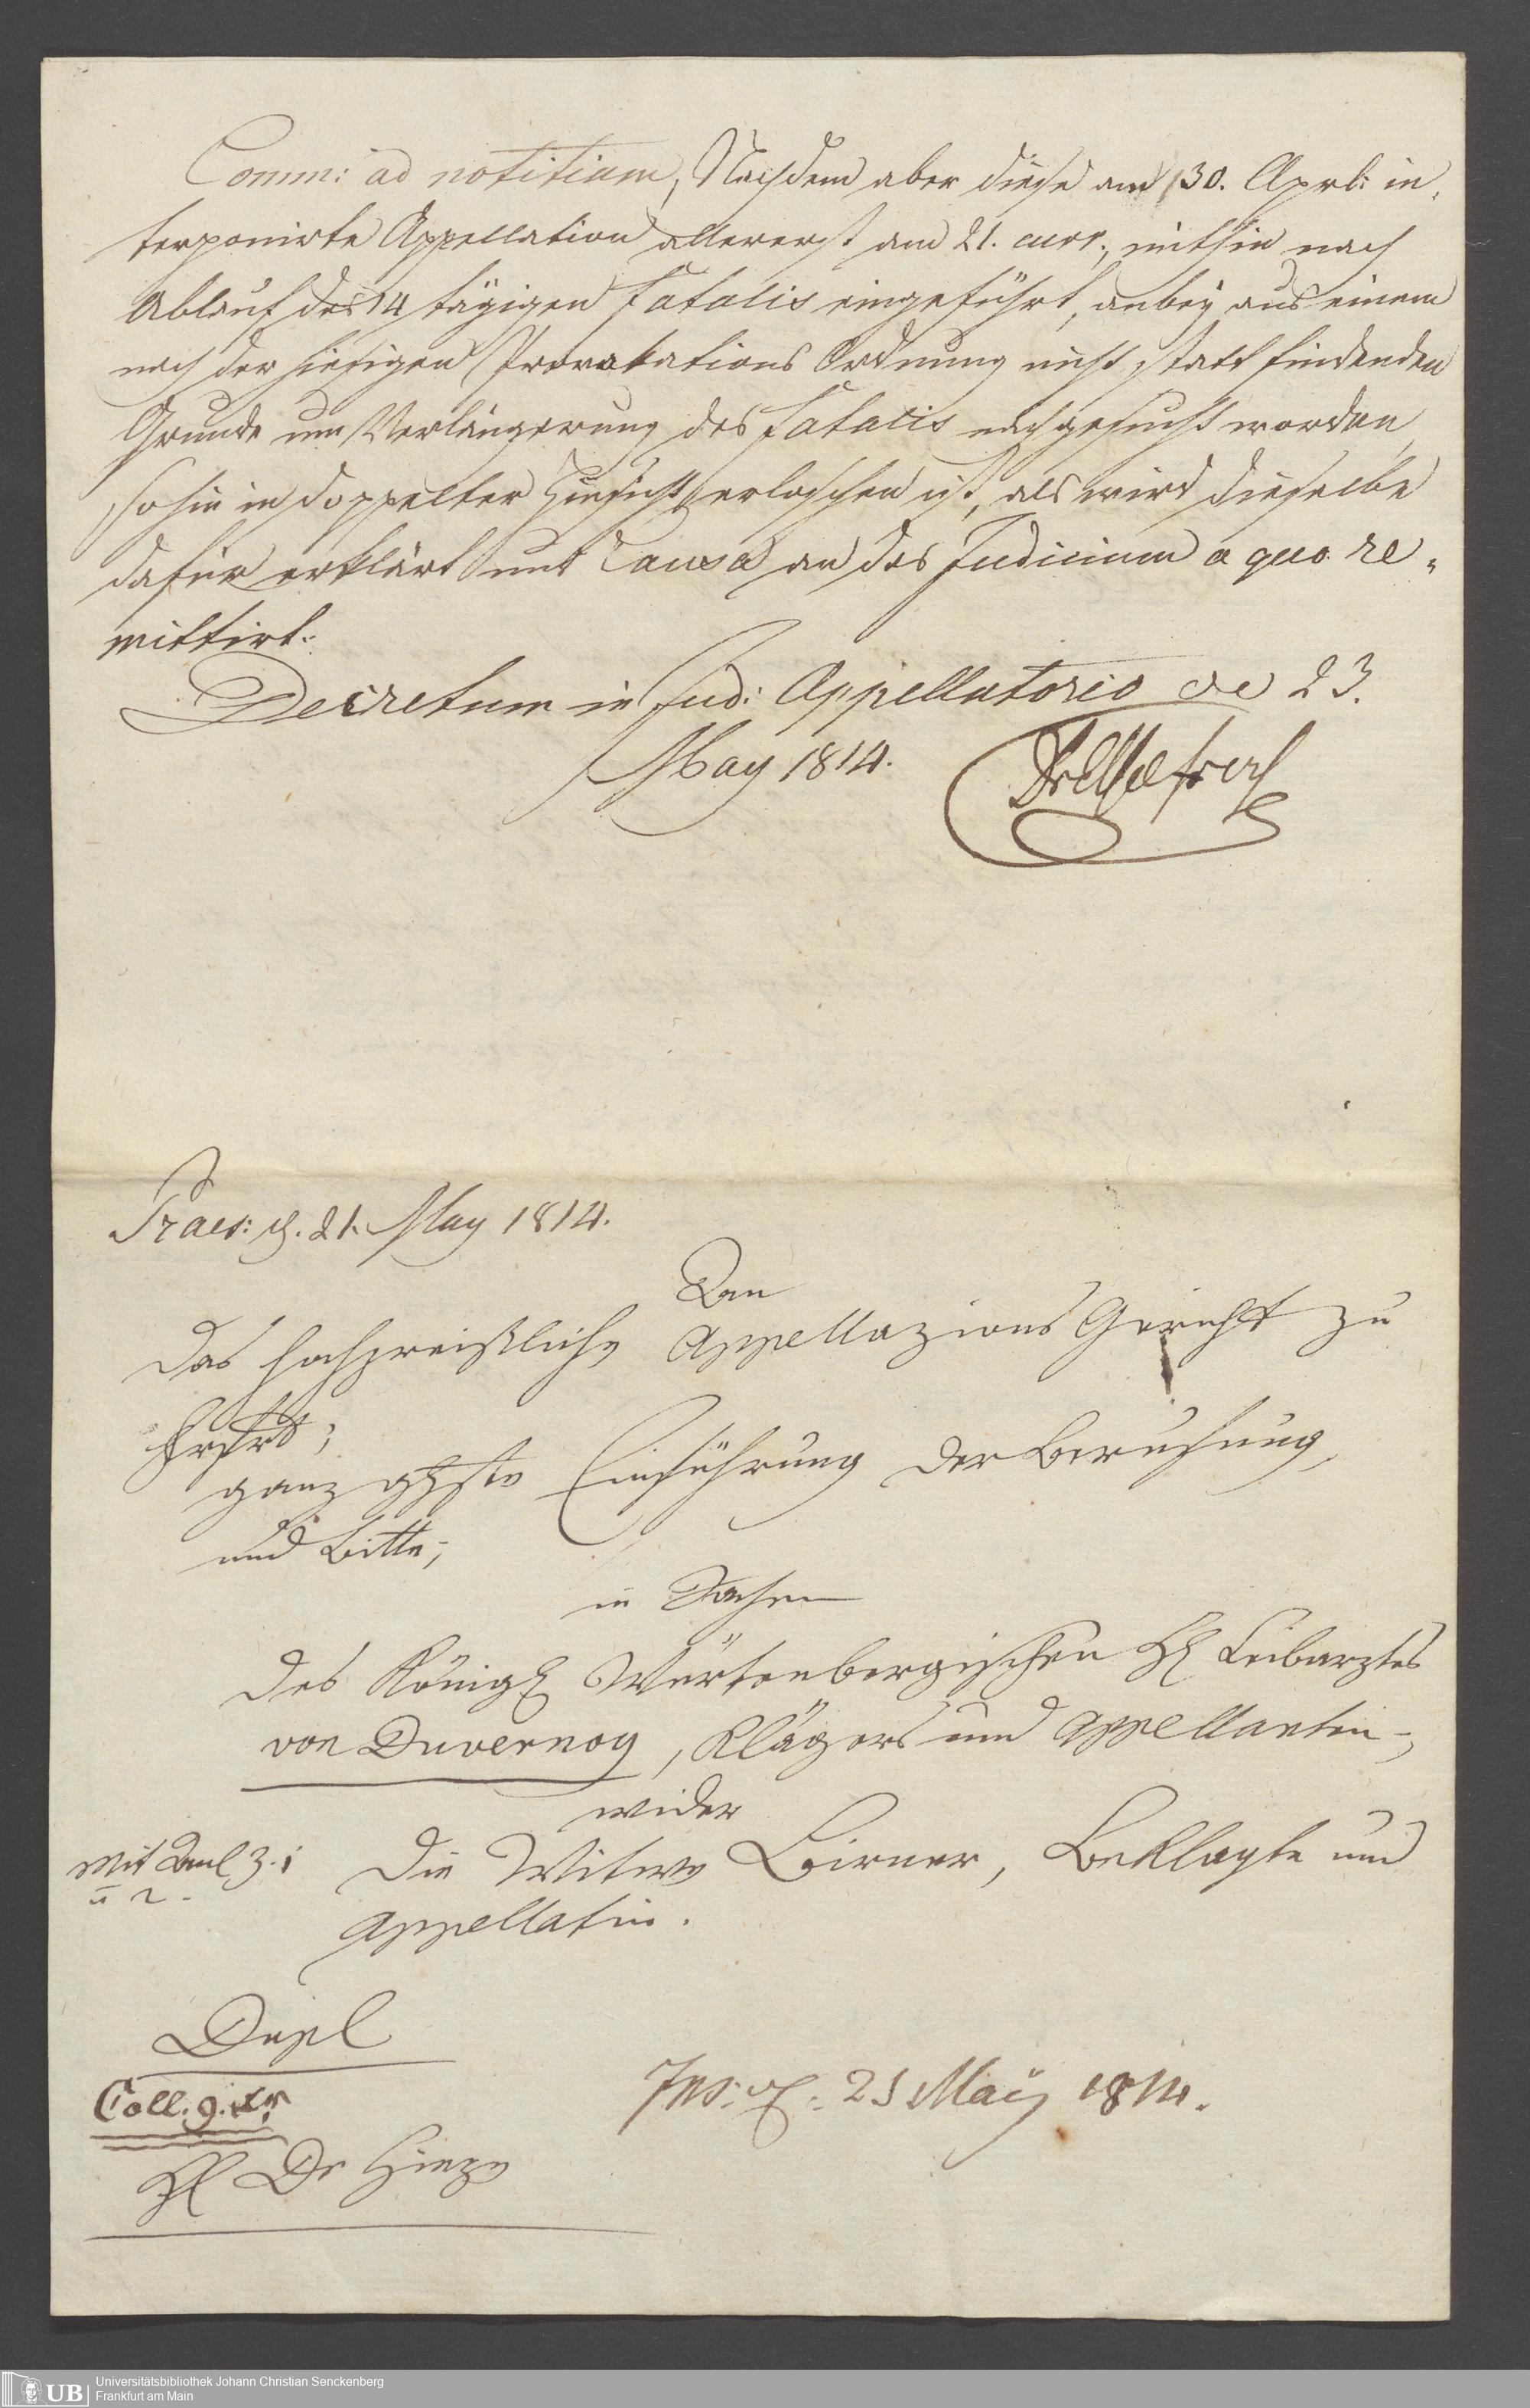 Comm: ad notitiam, Nachdem aber diese am 30. Aprl: in-
terponirte Appellation allererst am 21. curr., mithin nach
Ablauf des 14 tägigen Fatalis eingeführt, anbey aus einem
nach der hiesigen Provokations Ordnung nicht statt findenden
Grunde um Verlängerung des Fatalis nachgesucht worden,
sohin in doppelter Hinsicht erloschen ist, als wird dieselbe
dafür erklärt und Causa an das Judicium a quo re-
mittirt.
Decretum in Jud: Appellatorio de 23.
May 1814.
Praes: d. 21. May 1814.
An
das hochpreißliche Appellazions Gericht zu
Frfrt;
ganz Einführung der Berufung,
und Bitte;
in Sachen
des Königl Würtenbergischen H Leibarztes
von Duvernoy, Klägers und Appellanten;
wider
Mit Anl 3. 1
u 2.
die Witwe Birner, Beklagte und
Appellatin.
Dupl
Coll.
Ins. d: 25 May 1814.
H Dr
Universitätsbibliothek Johann Christian Senckenberg
UB
Frankfurt am Main